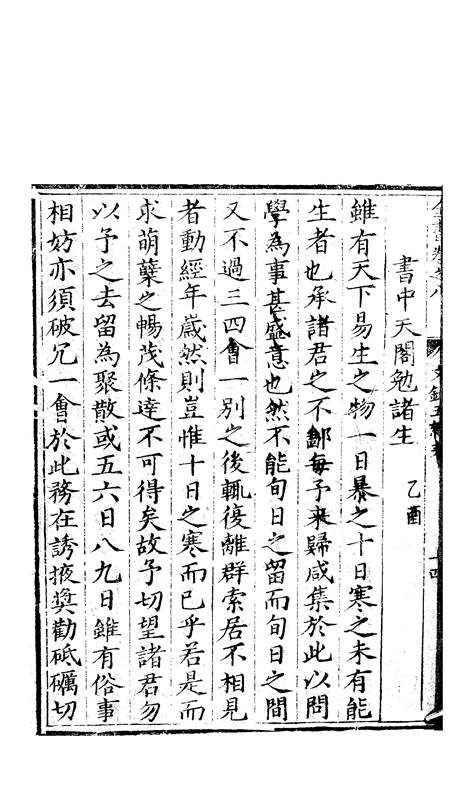 全書卷之八
書中天閣勉諸生 乙酉
雖有天下易生之物一日暴之十日寒之未有能
生者也承諸君之不鄙每予來歸咸集於此以問
學為事甚盛意也然不能旬日之留而旬日之間
又不過三四會一別之後輒復離群索居不相見
者動經年歲然則豈惟十日之寒而已乎若是而
求萌蘖之暢茂條達不可得矣故予切望諸君勿
以予之去留為聚散或五六日八九日雖有俗事
相妨亦須破冗一會於此務在誘掖奬勸砥礪切